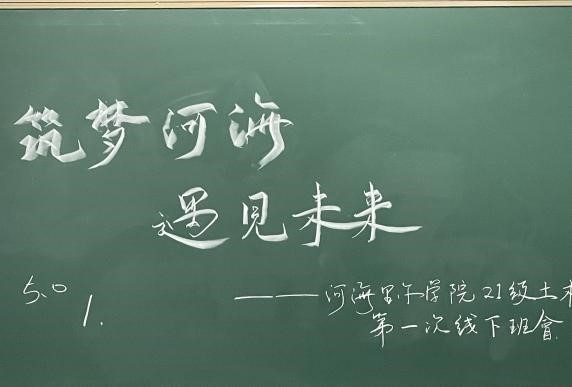 筑梦河海
遇见未来
5.0
1.
——河海里尔学院21级土木
第一次线下班會